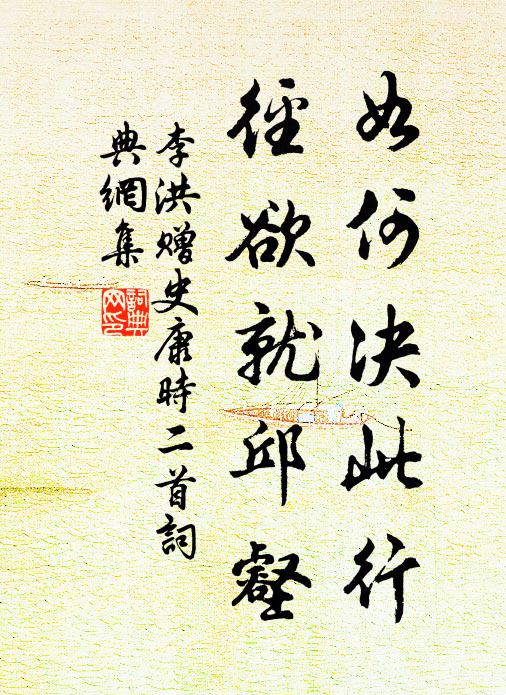 如何决此行
徑欲就邱壑
李洪贈史康時二首詞
典網集
詞典
网印